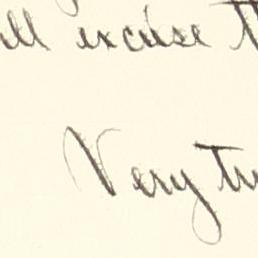 ll excuse th
Very tru